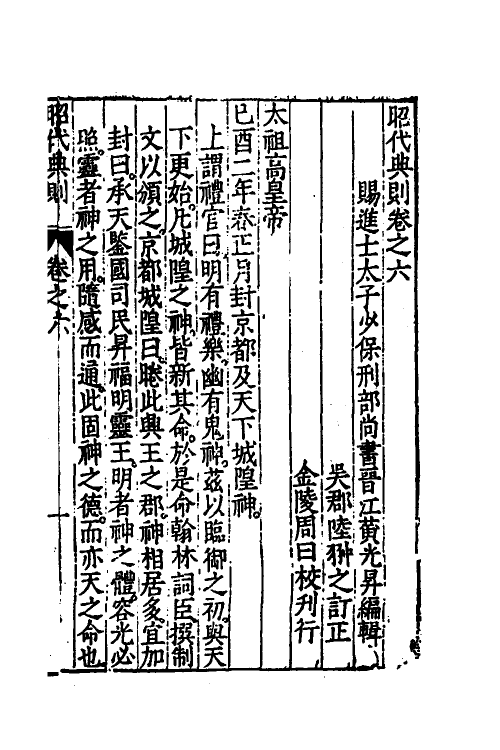 昭代典則卷之六
賜進士太子少保刑部尚書晉江黄光昇編輯
吳郡陸翀之訂正
金陵周曰校刋行
太祖高皇帝
己酉二年春正月封京都及天下城隍神。
上謂禮官曰明有禮樂幽有鬼神。茲以臨御之初。與天
下更始。凡城隍之神。皆新其命。於是命翰林詞臣撰制
文以頒之。京都城隍曰。睠此興王之郡。神相居多。宜加
封曰。承天鑒國司民昇福明靈王。明者神之體。容光必
照。靈者神之用。隨感而通。此固神之德。而亦天之命也
昭代典則 卷之六 一